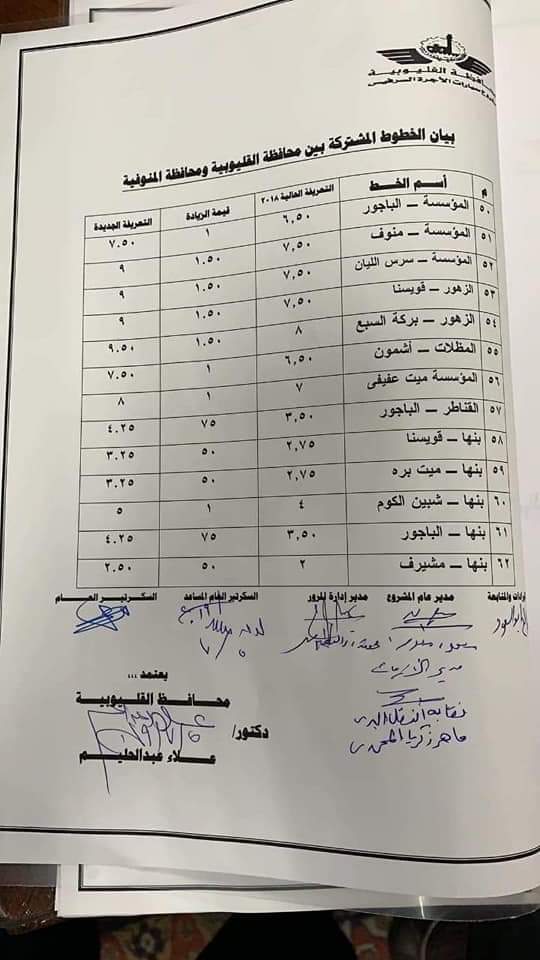 محافظة القليوبية
مشروع سيارات الأجرة السرفيس
بيان الخطوط المشتركة بين محافظة القليوبية ومحافظة المنوفية
م أسم الخط التعريفة الحالية ٢٠١٨ قيمة الزيادة التعريفة الجديدة
٥٠ المؤسسة – الباجور ٦,٥٠ ١ ٧.٥٠
٥١ المؤسسة – منوف ٧,٥٠ ١.٥٠ ٩
٥٢ المؤسسة – سرس الليان ٧,٥٠ ١.٥٠ ٩
٥٣ الزهور – قويسنا ٧,٥٠ ١.٥٠ ٩
٥٤ الزهور – بركة السبع ٨ ١.٥٠ ٩.٥٠
٥٥ المظلات – أشمون ٦,٥٠ ١ ٧.٥٠
٥٦ المؤسسة ميت عفيفى ٧ ١ ٨
٥٧ القناطر – الباجور ٣,٥٠ ٧٥ ٤.٢٥
٥٨ بنها – قويسنا ٢,٧٥ ٥٠ ٣.٢٥
٥٩ بنها – ميت بره ٢,٧٥ ٥٠ ٣.٢٥
٦٠ بنها – شبين الكوم ٤ ١ ٥
٦١ بنها – الباجور ٣,٥٠ ٧٥ ٤.٢٥
٦٢ بنها – مشيرف ٢ ٥٠ ٢.٥٠
والمتابعة مدير عام المشروع مدير إدارة المرور السكرتير العام المساعد السكرتير العام
نقابة النقل البرى
ماهر زكريا
يعتمد ,,,
محافظ القليوبية
دكتور/
علاء عبدالحليم